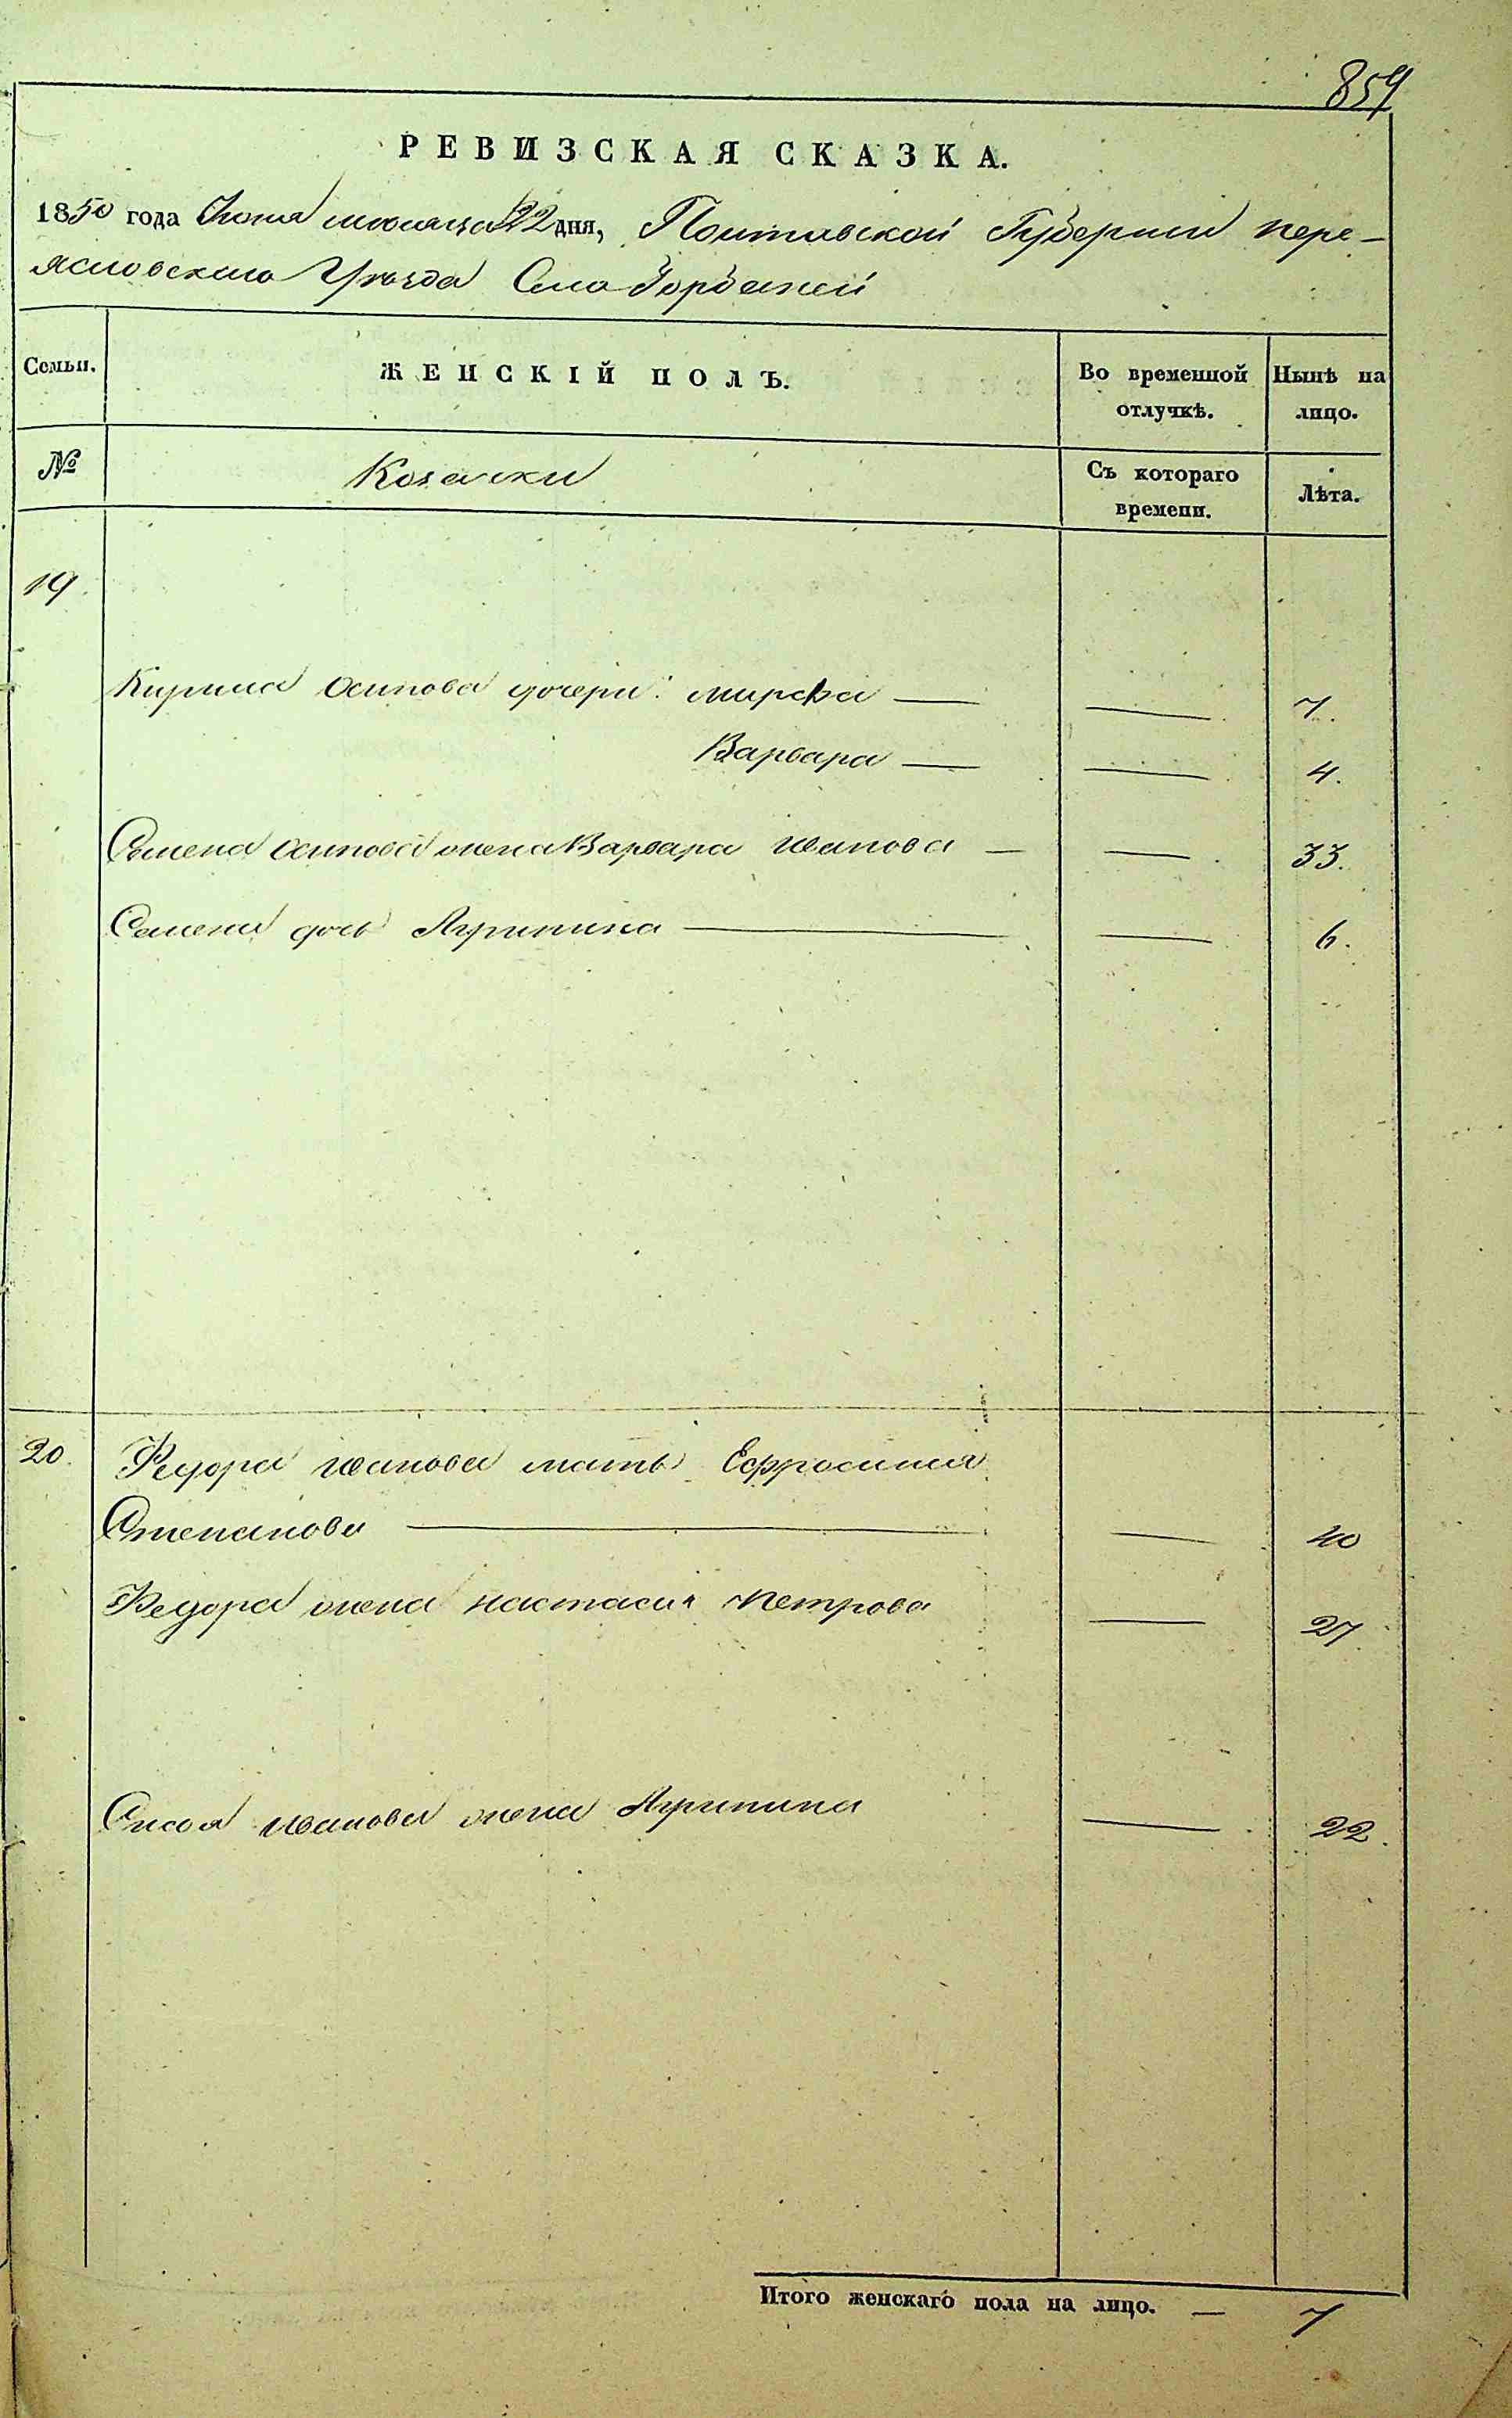 859
РЕВИЗСКАЯ СКАЗКА.
1850 года Июня месяца 22 дня, Полтавской Губернии пере-
яславского Уезда Села Горбаней
Семьи. ЖЕНСКІЙ ПОЛЪ. Во временной отлучкѣ. Нынѣ на лицо.
№ Козачки Съ котораго времени. Лѣта.
19.
Кирила Осипова дочери: Марфа — — 7.
Варвара — — 4.
Семена Осипова жена Варвара Иванова — — 33.
Семена дочь Агрипина — — 6.
20. Федора Иванова мать Ефросиния
Степанова — — 40
Федора жена Настасия Петрова — 27
Иванова жена Агрипина — 22.
Итого женскаго пола на лицо. — 7